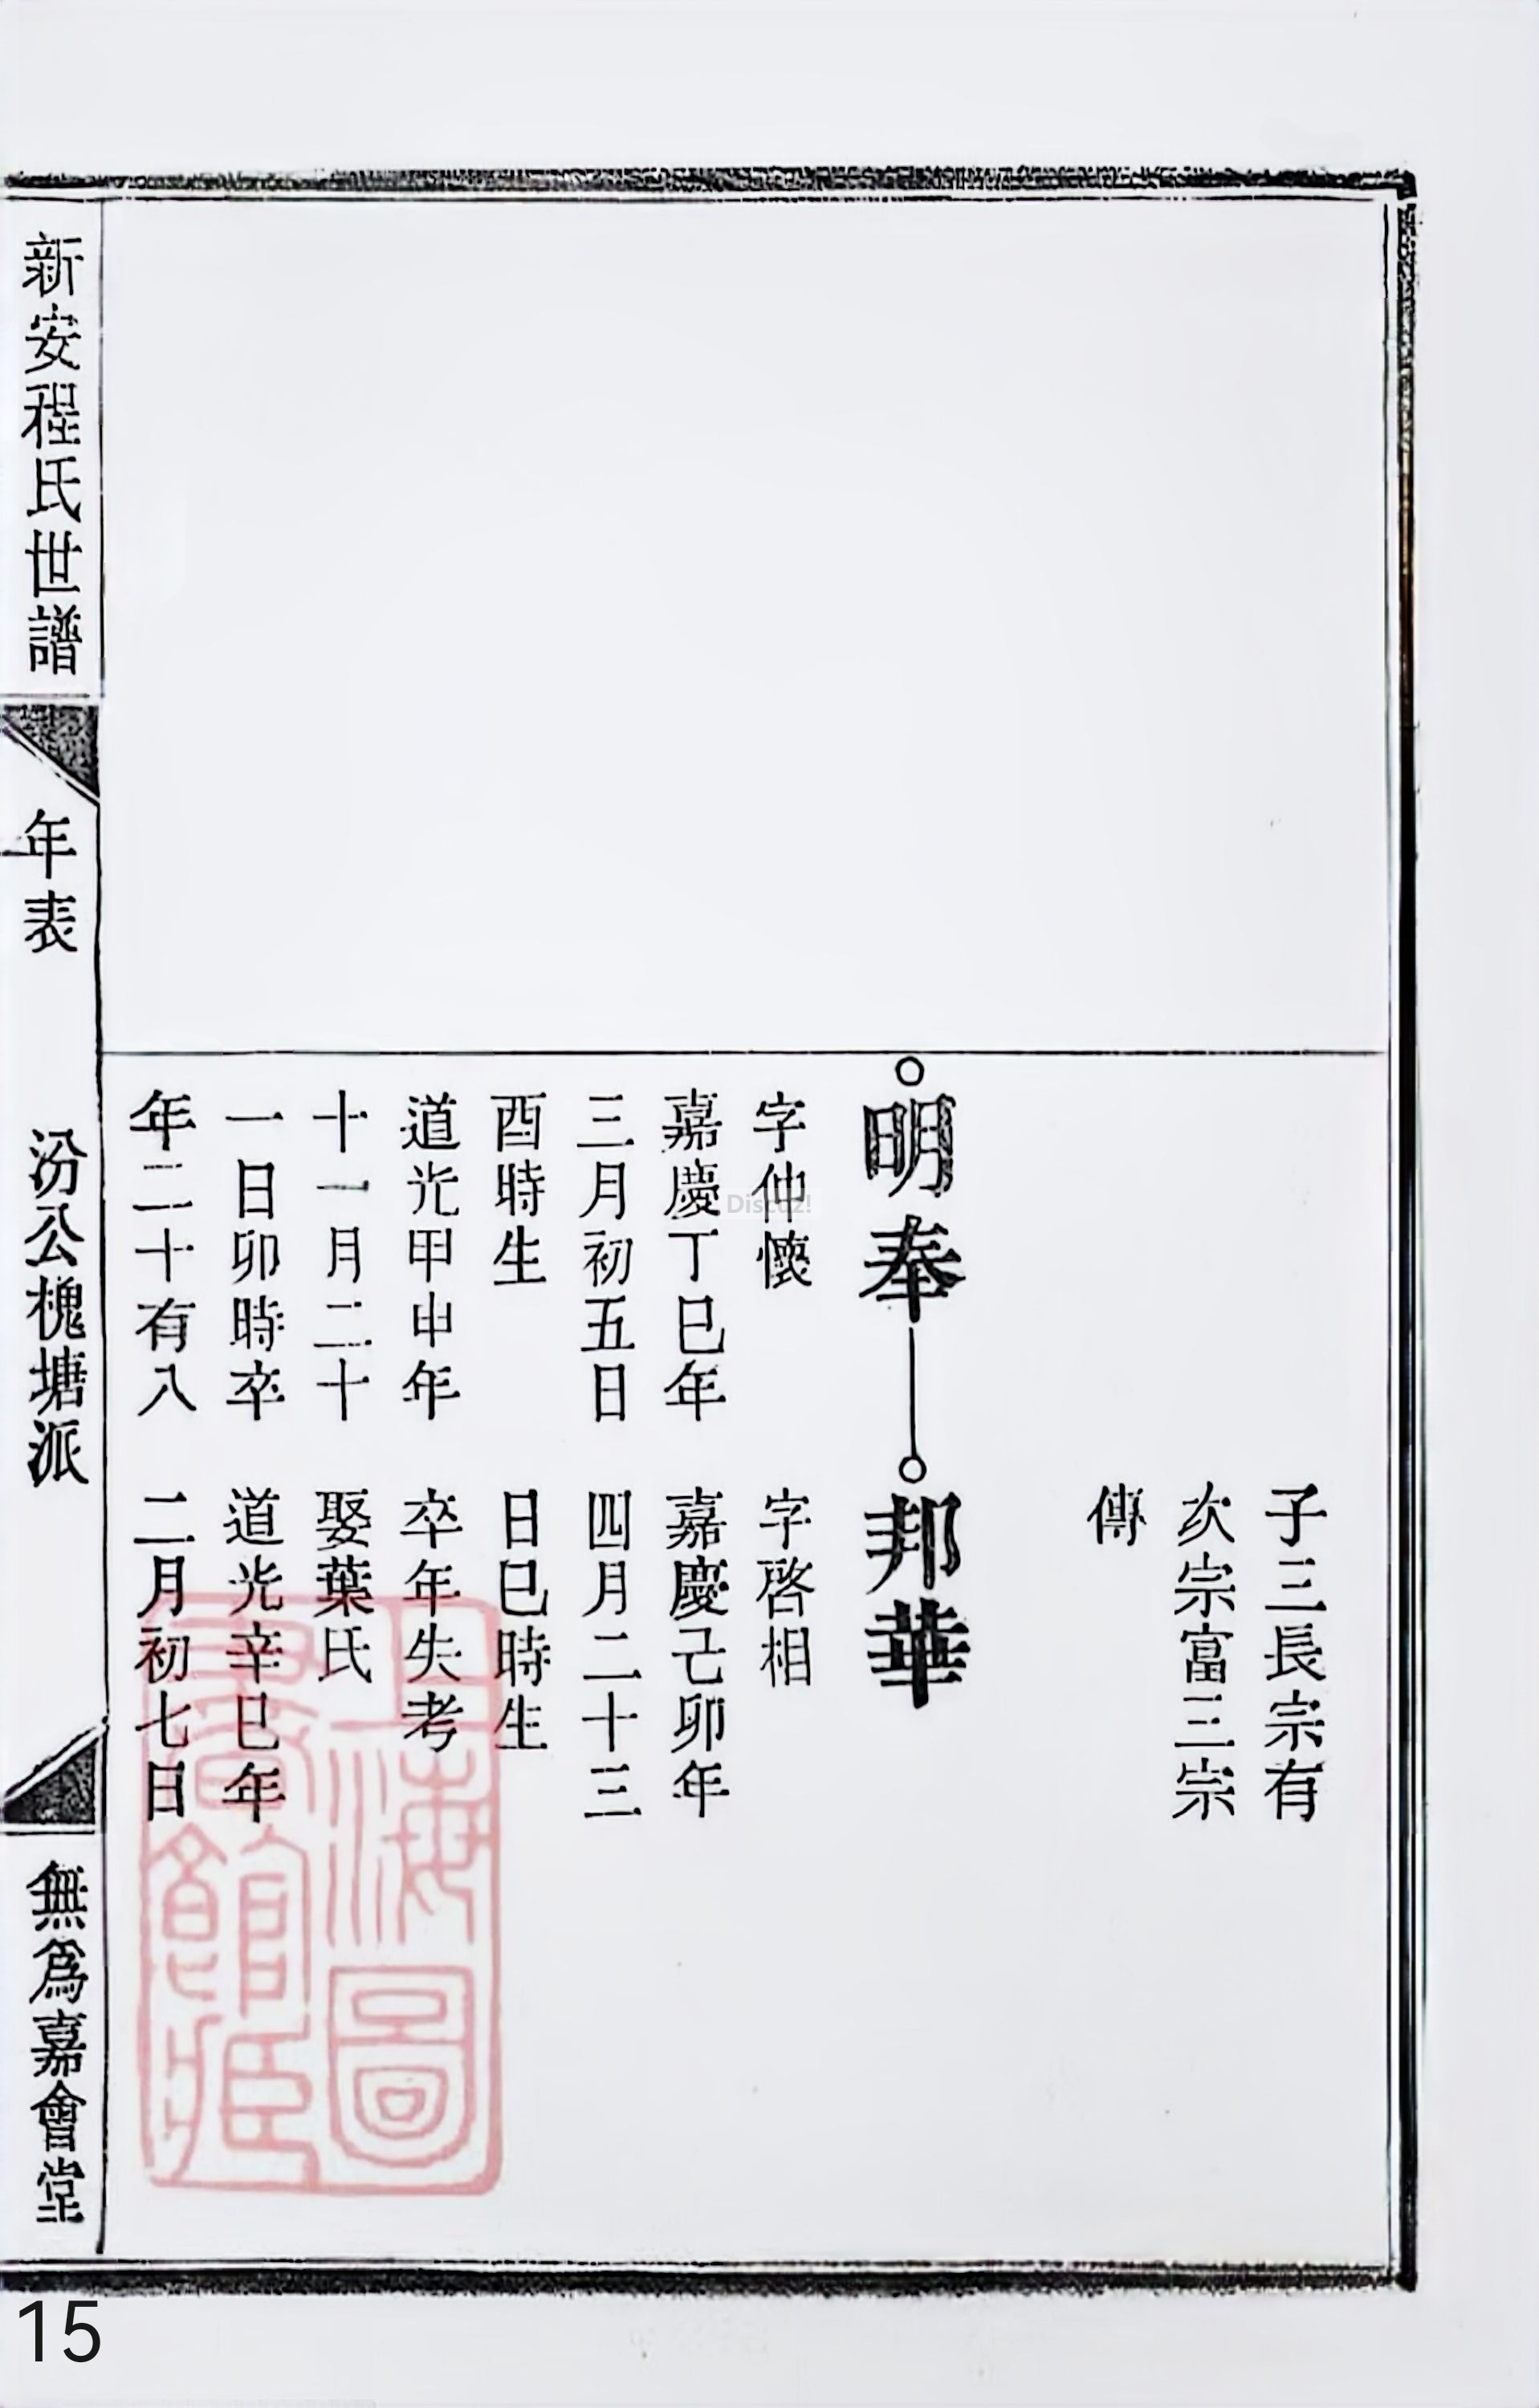 子三長宗有
次宗富三宗
傳
明奉
邦華
字仲懷
嘉慶丁巳年
三月初五日
酉時生
道光甲申年
十一月二十
一日卯時卒
年二十有八
字啓相
嘉慶己卯年
四月二十三
日巳時生
卒年失考
娶葉氏
道光辛巳年
二月初七日
新安程氏世譜
年表
汾公槐塘派
無爲嘉會堂
上海圖
書館藏
Discuz!
15